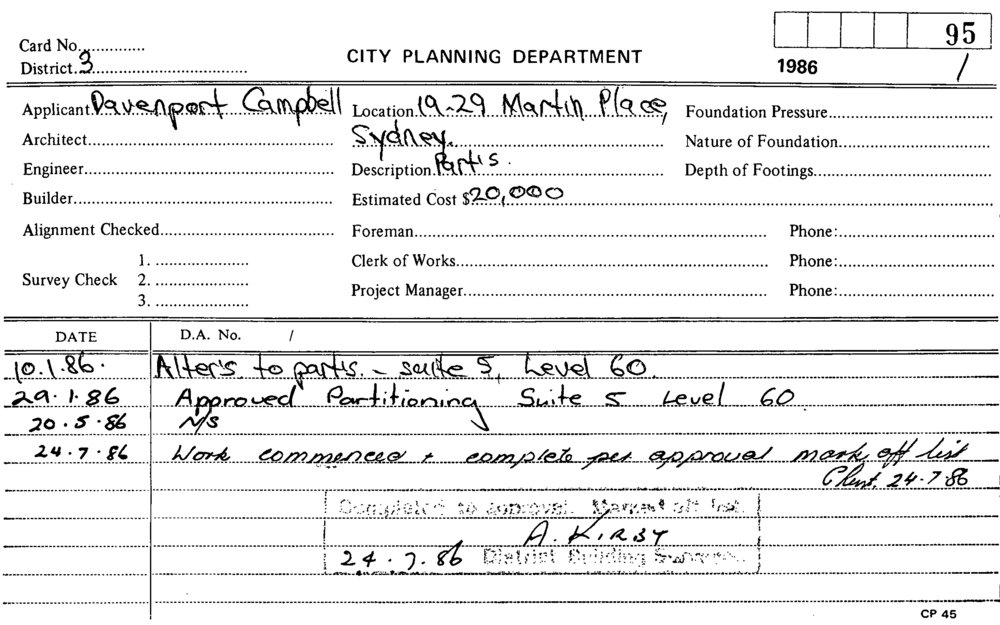 95
Card No.
CITY PLANNING DEPARTMENT
District. 3
1986 /
Applicant Davenport Campbell Location 19-29 Martin Place, Foundation Pressure
Architect Sydney. Nature of Foundation
Engineer Description Partis. Depth of Footings
Builder Estimated Cost $20,000
Alignment Checked Foreman Phone:
1. Clerk of Works Phone:
Survey Check 2.
Project Manager Phone:
3.
DATE D.A. No. /
10.1.86. Alter's to partis. - suite 5, Level 60.
29.1.86 Approved Partitioning Suite 5 Level 60
20.5.86 N/S
24.7.86 Work commenced + complete per approval mark off list
24.7.86
Completed to approval. Marked off list.
A. KIRBY
24.7.86 District Building Surveyor
CP 45